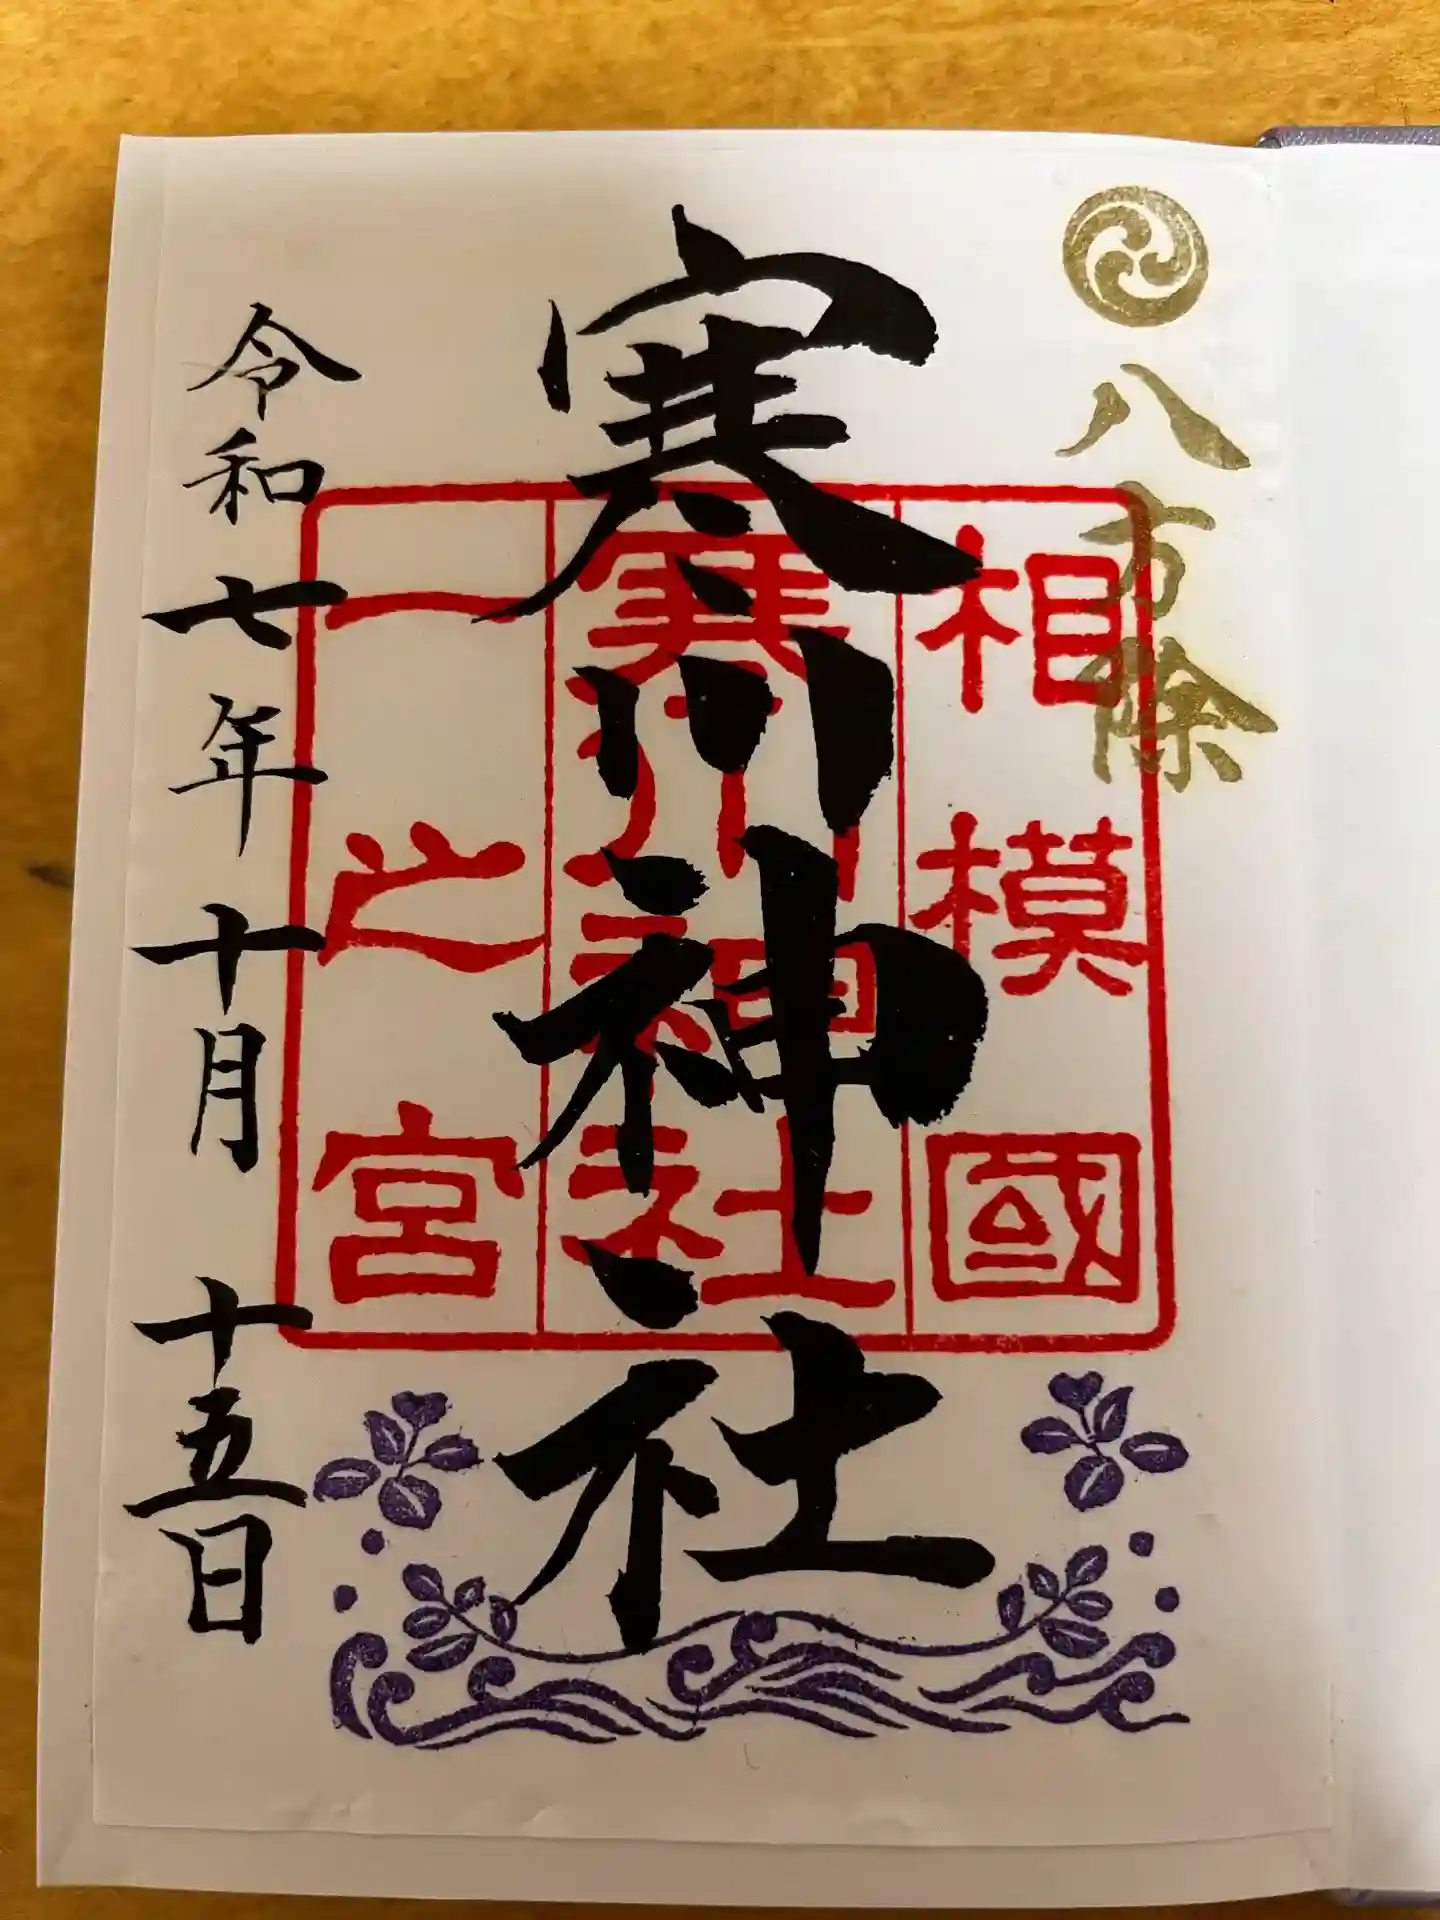 八方除
寒川神社
相模國
寒川神社
一之宮
令和七年十月十五日